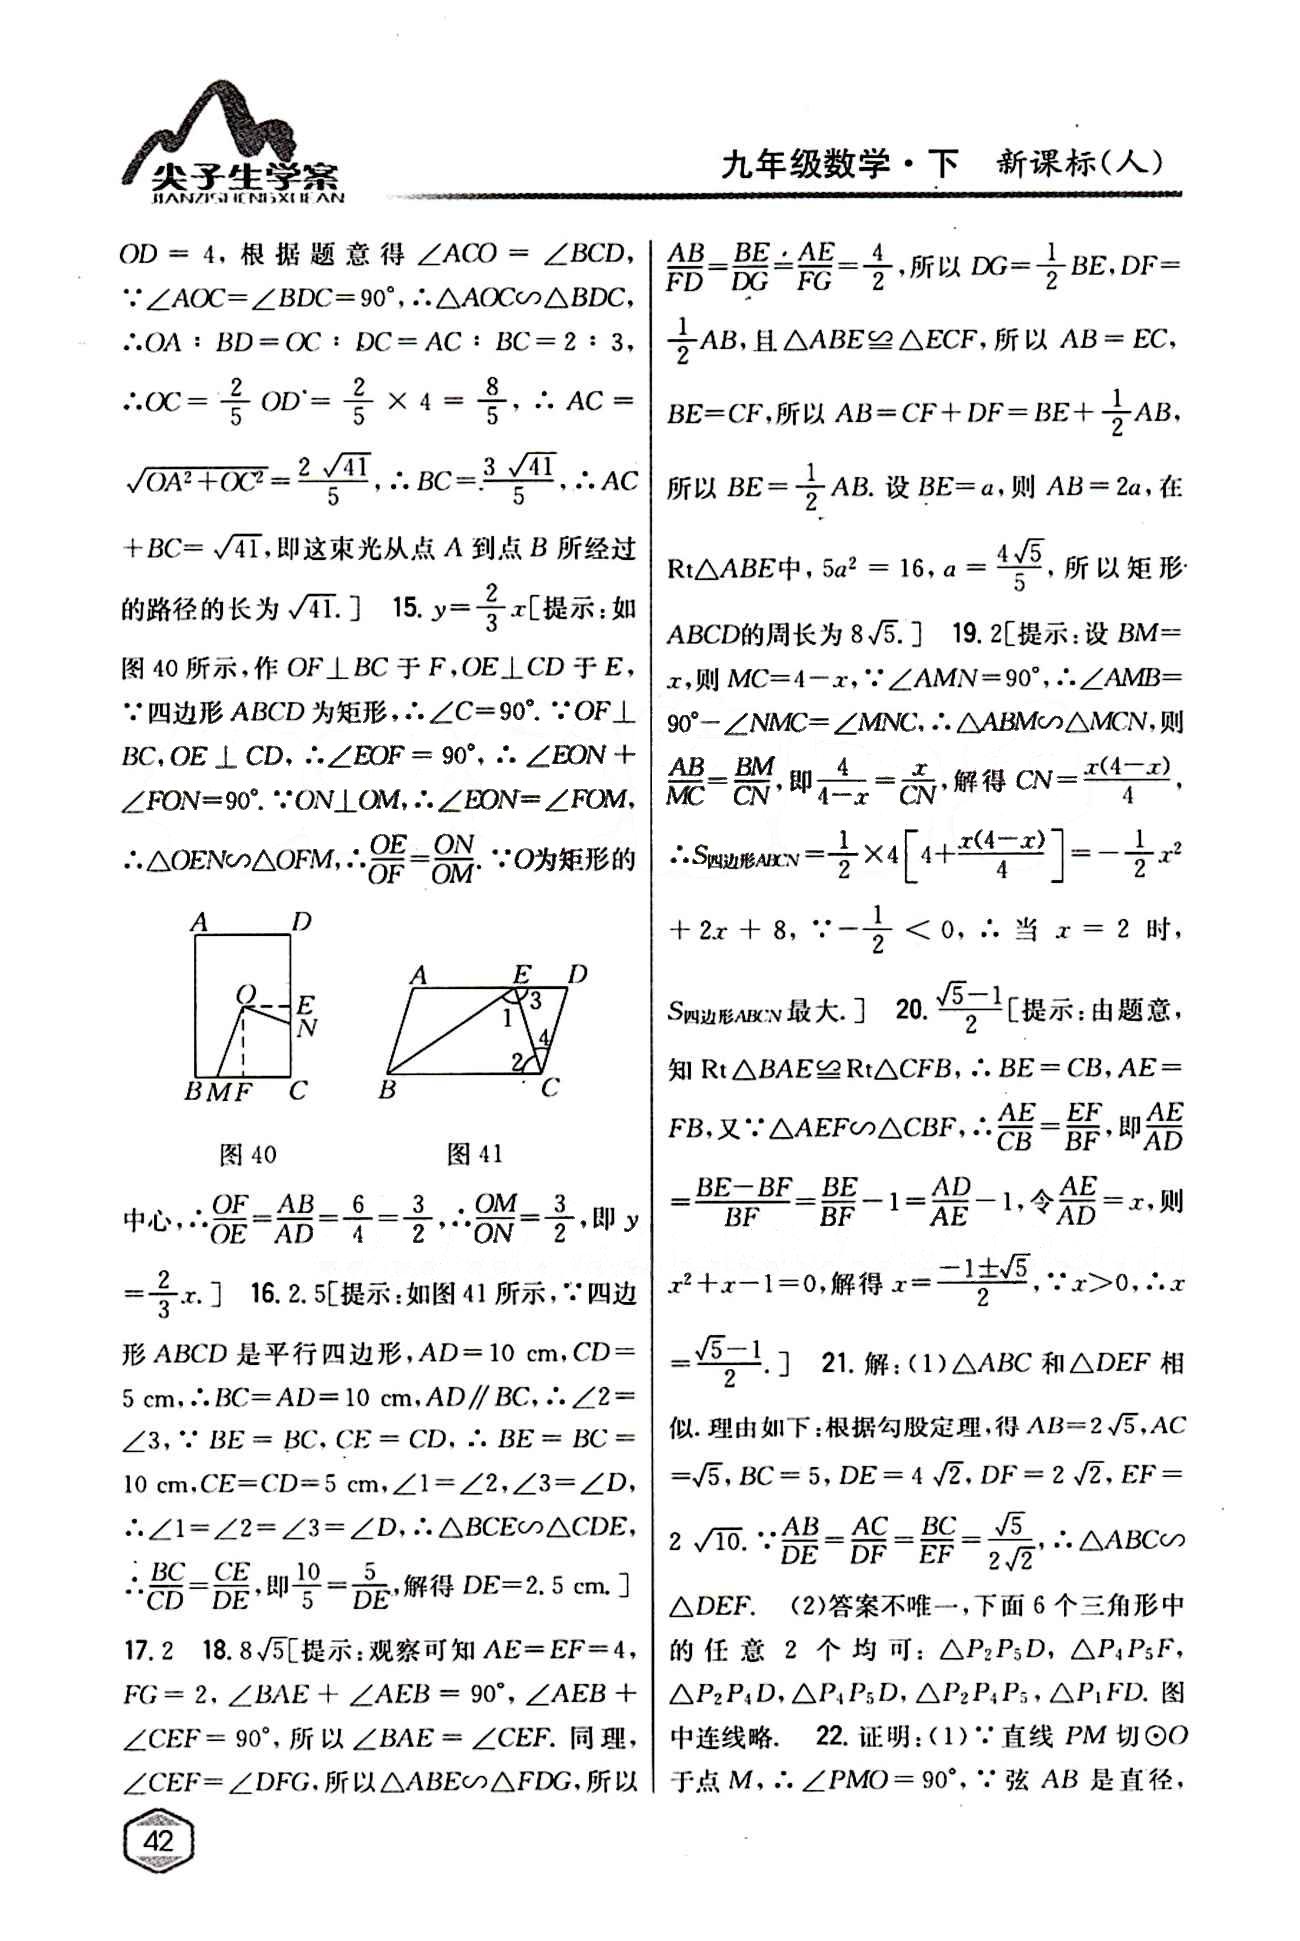 尖子生学案
JIANZISHENGXUEAN
九年级数学·下 新课标(人)
OD = 4, 根据题意得 ∠ACO = ∠BCD,
∵∠AOC=∠BDC=90°,∴△AOC∽△BDC,
∴OA : BD=OC : DC=AC : BC=2 : 3,
∴OC = 2/5 OD = 2/5 × 4 = 8/5, ∴ AC =
√(OA²+OC²) = 2√41/5, ∴ BC = 3√41/5, ∴ AC
+BC= √41, 即这束光从点 A 到点 B 所经过
的路径的长为 √41. ] 15. y= 2/3 x[提示:如
图 40 所示,作 OF⊥BC 于 F,OE⊥CD 于 E,
∵四边形 ABCD 为矩形,∴∠C=90°. ∵OF⊥
BC,OE⊥CD, ∴∠EOF = 90°, ∴ ∠EON +
∠FON=90°. ∵ON⊥OM,∴∠EON=∠FOM,
∴△OEN∽△OFM,∴ OE/OF = ON/OM. ∵O为矩形的
A D
O E
N
B M F C
图 40
A E D
1 3
2 4
B C
图 41
中心,∴ OF/OE = AB/AD = 6/4 = 3/2, ∴ OM/ON = 3/2, 即 y
= 2/3 x. ] 16. 2.5[提示:如图 41 所示,∵四边
形 ABCD 是平行四边形,AD=10 cm,CD=
5 cm,∴BC=AD=10 cm,AD∥BC,∴∠2=
∠3, ∵ BE = BC, CE = CD, ∴ BE = BC =
10 cm,CE=CD=5 cm,∠1=∠2,∠3=∠D,
∴∠1=∠2=∠3=∠D,∴△BCE∽△CDE,
∴ BC/CD = CE/DE, 即 10/5 = 5/DE, 解得 DE=2.5 cm. ]
17. 2 18. 8√5[提示:观察可知 AE=EF=4,
FG = 2, ∠BAE + ∠AEB = 90°, ∠AEB +
∠CEF = 90°, 所以 ∠BAE = ∠CEF. 同理,
∠CEF=∠DFG,所以△ABE∽△FDG,所以
AB/FD = BE/DG = AE/FG = 4/2, 所以 DG= 1/2 BE, DF=
1/2 AB, 且 △ABE≌△ECF, 所以 AB = EC,
BE=CF,所以 AB=CF+DF=BE+ 1/2 AB,
所以 BE= 1/2 AB. 设 BE=a, 则 AB=2a, 在
Rt△ABE中, 5a² = 16, a = 4√5/5, 所以矩形
ABCD的周长为 8√5. ] 19. 2[提示:设 BM=
x,则 MC=4-x,∵∠AMN=90°,∴∠AMB=
90°-∠NMC=∠MNC,∴△ABM∽△MCN,则
AB/MC = BM/CN, 即 4/(4-x) = x/CN, 解得 CN= x(4-x)/4,
∴S四边形ABCN = 1/2 ×4[4+ x(4-x)/4] = - 1/2 x²
+ 2x + 8, ∵ - 1/2 < 0, ∴ 当 x = 2 时,
S四边形ABCN 最大. ] 20. (√5-1)/2 [提示:由题意,
知 Rt△BAE≌Rt△CFB, ∴ BE=CB, AE=
FB,又∵△AEF∽△CBF,∴ AE/CB = EF/BF, 即 AE/AD
= (BE-BF)/BF = BE/BF -1 = AD/AE -1, 令 AE/AD = x, 则
x²+x-1=0,解得 x= (-1±√5)/2, ∵x>0,∴x
= (√5-1)/2. ] 21. 解:(1)△ABC 和△DEF 相
似. 理由如下:根据勾股定理,得 AB=2√5,AC
=√5, BC = 5, DE = 4√2, DF = 2√2, EF =
2√10. ∵ AB/DE = AC/DF = BC/EF = √5/(2√2), ∴△ABC∽
△DEF. (2)答案不唯一,下面 6 个三角形中
的任意 2 个均可: △P₂P₅D, △P₄P₅F,
△P₂P₄D, △P₄P₅D, △P₂P₄P₅, △P₁FD. 图
中连线略. 22. 证明:(1)∵直线 PM 切⊙O
于点 M, ∴ ∠PMO = 90°, ∵ 弦 AB 是直径,
42